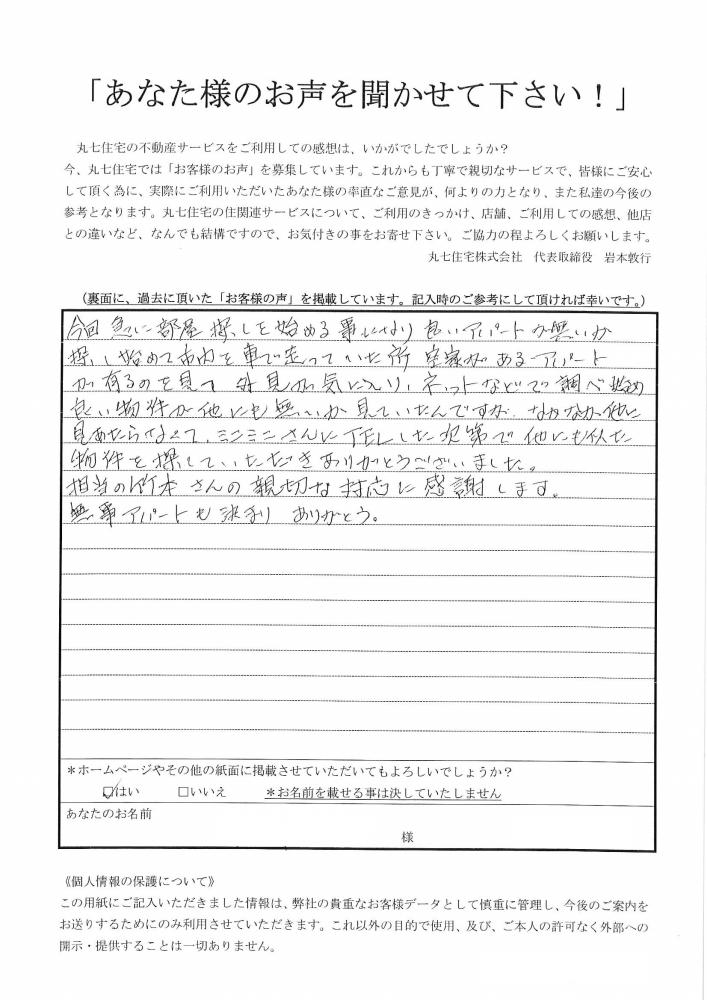 「あなた様のお声を聞かせて下さい！」
丸七住宅の不動産サービスをご利用しての感想は、いかがでしたでしょうか？
今、丸七住宅では「お客様のお声」を募集しています。これからも丁寧で親切なサービスで、皆様にご安心
して頂く為に、実際にご利用いただいたあなた様の率直なご意見が、何よりの力となり、また私達の今後の
参考となります。丸七住宅の住関連サービスについて、ご利用のきっかけ、店舗、ご利用しての感想、他店
との違いなど、なんでも結構ですので、お気付きの事をお寄せ下さい。ご協力の程よろしくお願いします。
丸七住宅株式会社　代表取締役　岩本敦行
（裏面に、過去に頂いた「お客様の声」を掲載しています。記入時のご参考にして頂ければ幸いです。）
今回 急に部屋探しを始める事になり 良いアパートが無いか
探し始めて市内を車で走っていた所 空家があるアパート
が有るのを見て 外見が気に入り、ネットなどで調べ始め
良い物件が他にも無いか見ていたんですが、なかなか他に
見あたらなくて、ミニミニさんにTELした次第で他にも似た
物件を探していただきありがとうございました。
担当の竹本さんの親切な対応に感謝します。
無事アパートも決まり ありがとう。
＊ホームページやその他の紙面に掲載させていただいてもよろしいでしょうか？
☑はい　□いいえ　＊お名前を載せる事は決していたしません
あなたのお名前
様
《個人情報の保護について》
この用紙にご記入いただきました情報は、弊社の貴重なお客様データとして慎重に管理し、今後のご案内を
お送りするためにのみ利用させていただきます。これ以外の目的で使用、及び、ご本人の許可なく外部への
開示・提供することは一切ありません。